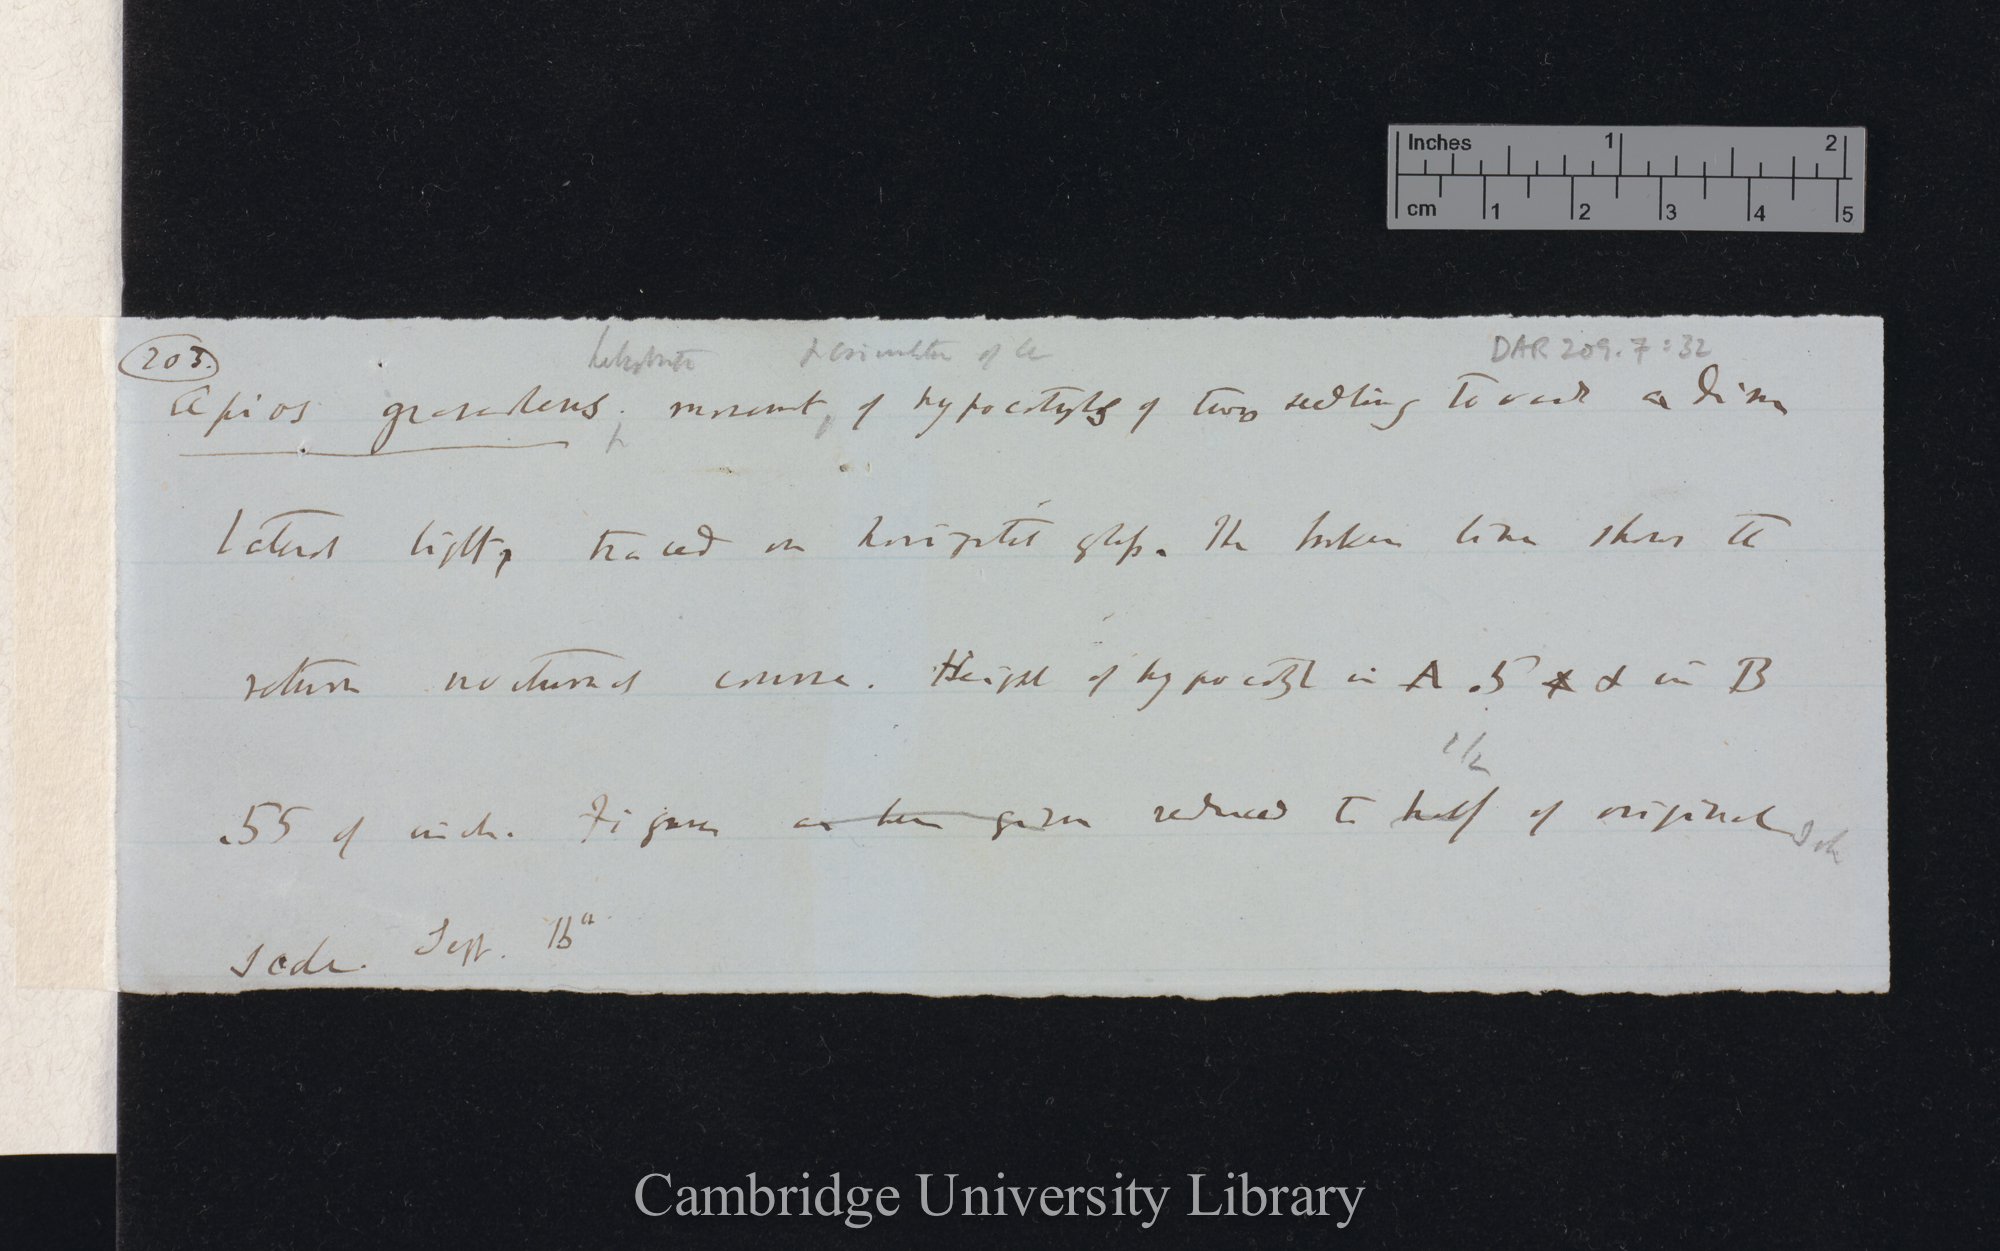 Inches 1 2
cm 1 2 3 4 5
DAR 209.7:32
203.
Apios graveolens: movement of hypocotyls of two seedlings toward a dim
lateral light, traced on horizontal glass. The broken line shows the
return nocturnal course. Height of hypocotyl in A .5 & in B
1/2
.55 of inch. Figure as here given reduced to half of original
scale. Sept.
Cambridge University Library